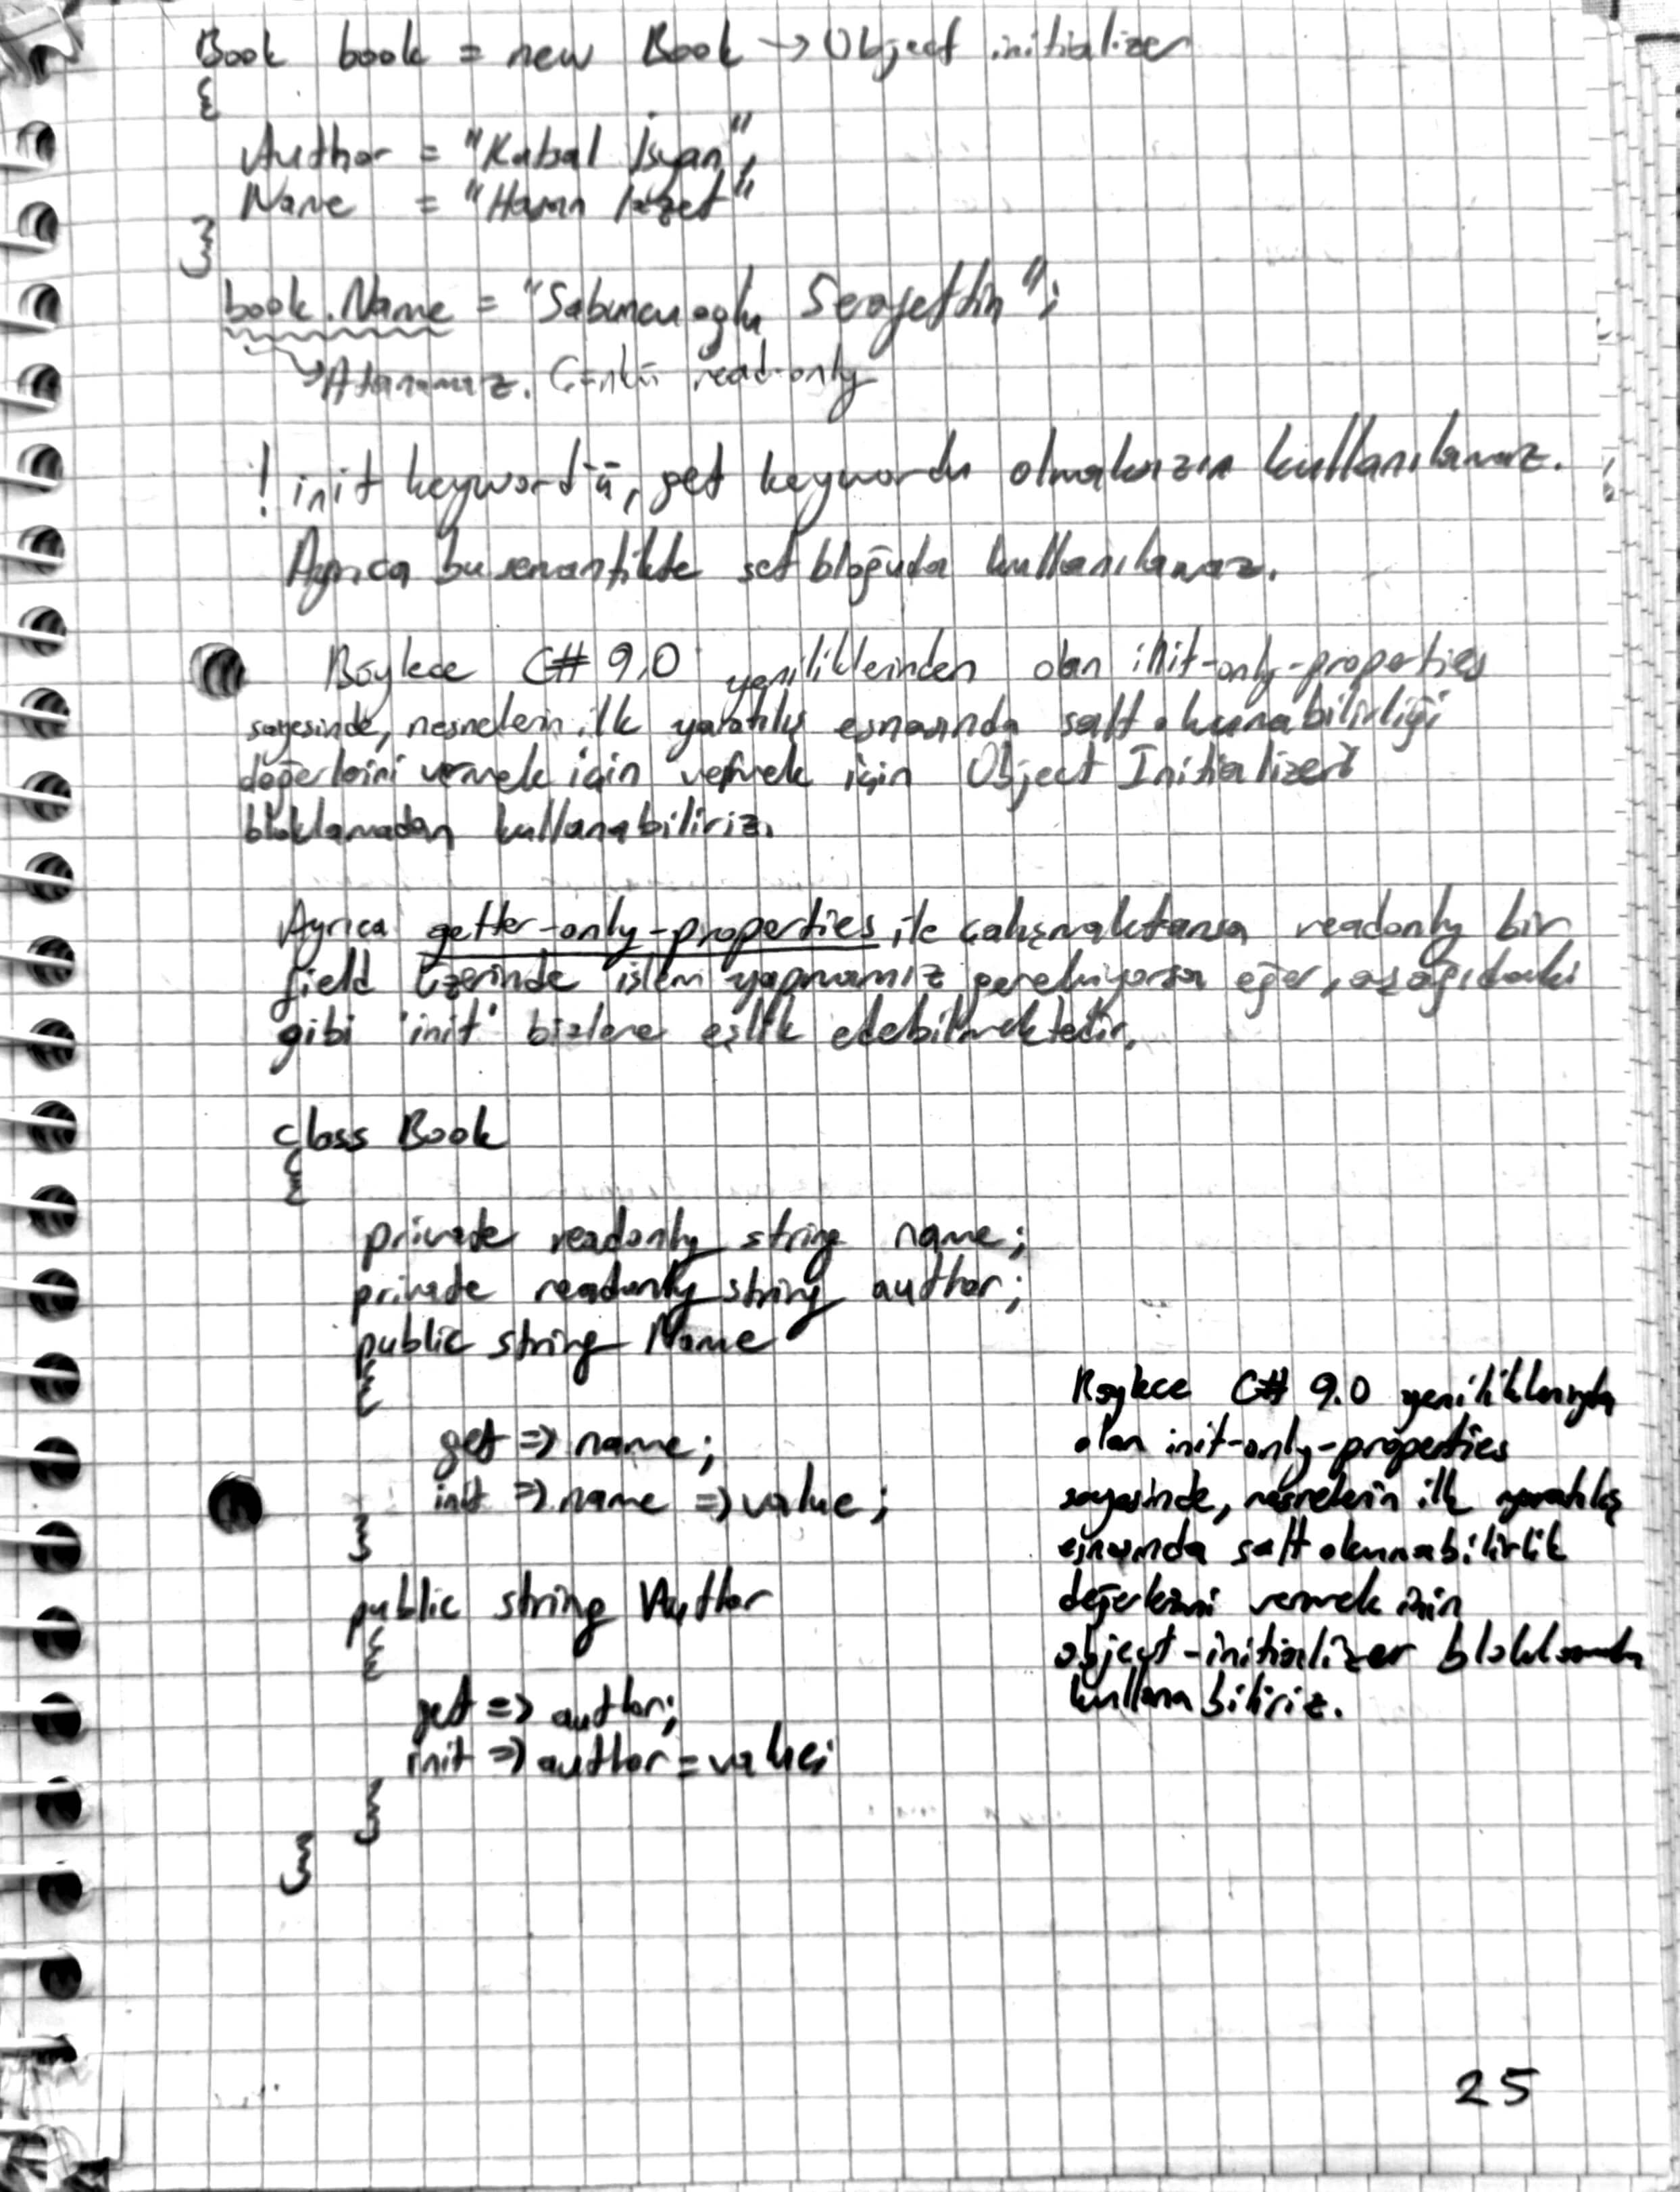 Book book = new Book → Object initializer
{
Author = "Kabal İsyan",
Name = "Hasan İzzet"
}
book.Name = "Sabuncuoglu Serafettin";
→ Atanamaz. Çünkü read-only
! init keywordü, get keywordu olmaksızın kullanılamaz.
Ayrıca bu semantikte set bloğuda kullanılamaz.
Böylece C# 9.0 yeniliklerinden olan init-only-properties
sayesinde, nesnelerin ilk yaratılış esnasında salt okunabilirliği
değerlerini vermek için vermek için Object Initializerı
bloklamadan kullanabiliriz.
Ayrıca getter-only-properties ile çalışmaktansa readonly bir
field üzerinde işlem yapmamız gerekiyorsa eğer, aşağıdaki
gibi 'init' bizlere eşlik edebilmektedir.
class Book
{
private readonly string name;
private readonly string author;
public string Name
{
get => name;
init => name => value;
}
public string Author
{
get => author;
init => author = value;
}
}
Böylece C# 9.0 yeniliklerinden
olan init-only-properties
sayesinde, nesnelerin ilk yaratılış
esnasında salt okunnabilirlik
değerlerini vermek için
object-initializer bloklamadan
kullanabiliriz.
25